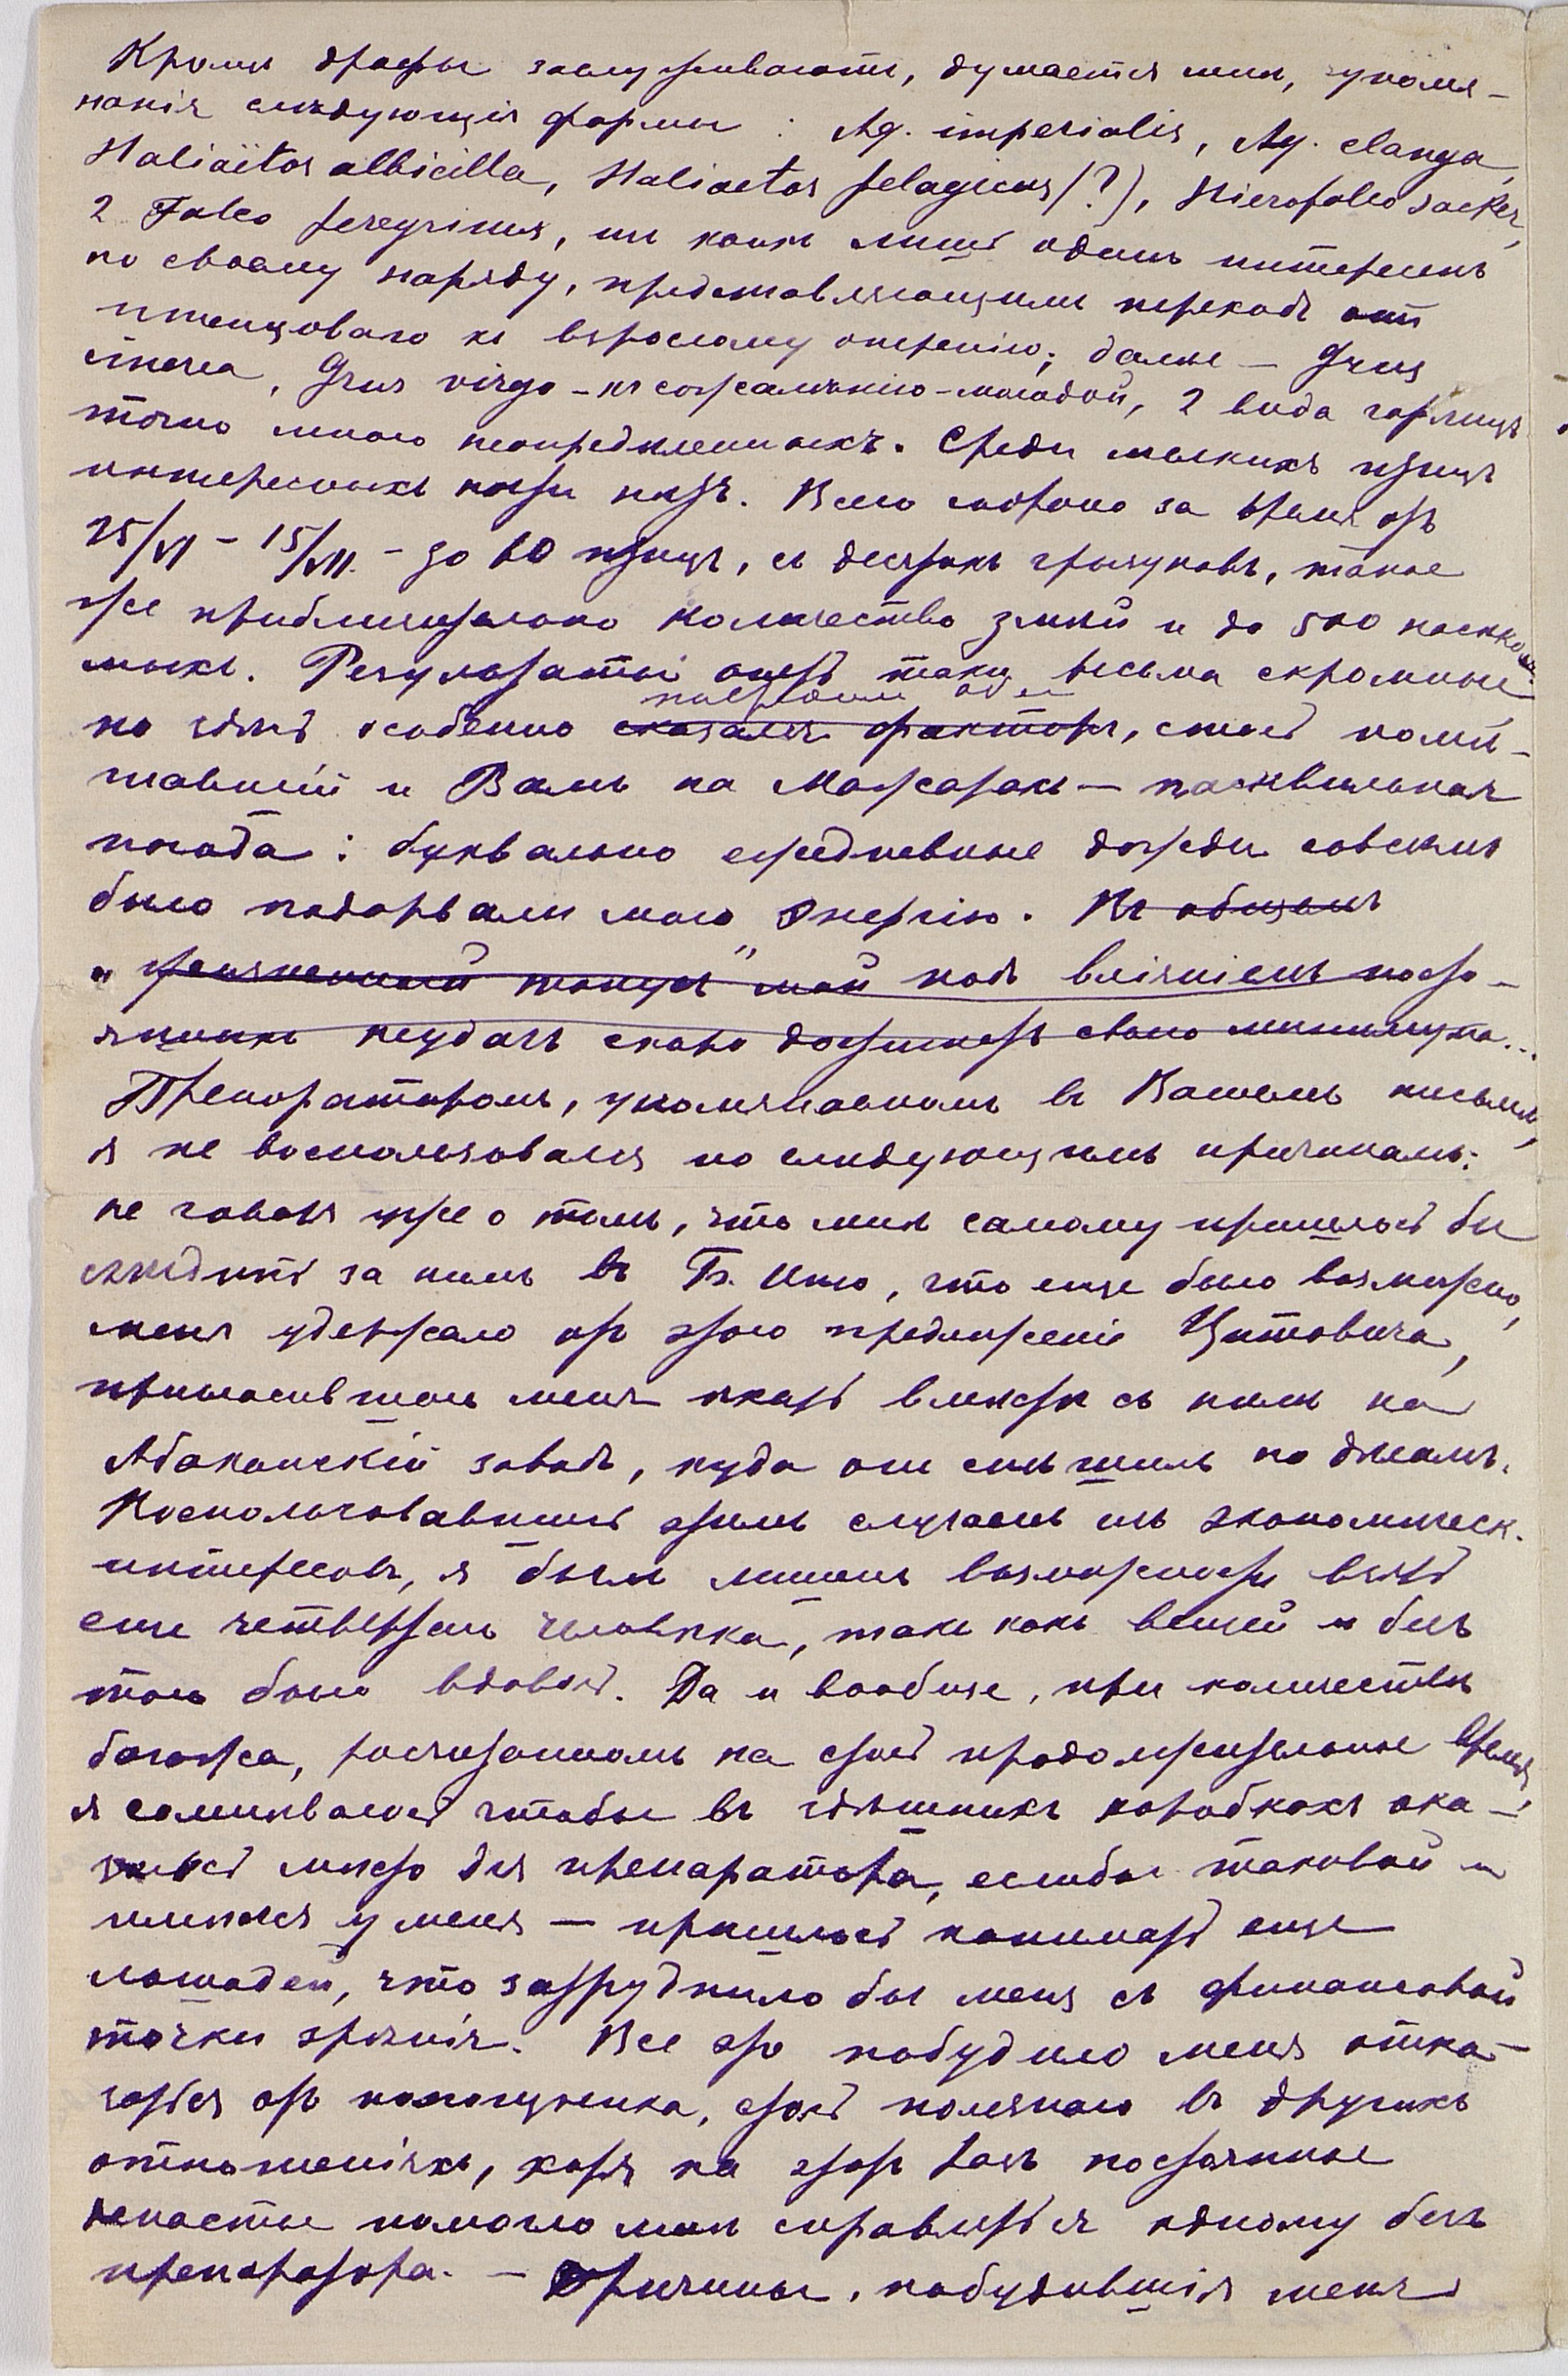 Кромѣ дрофы заслуживаютъ, думается мнѣ, упомя-
нанія слѣдующія формы : Aq. imperialis, Aq. clanga,
Haliaëtos albicilla, Haliaetos pelagicus (?), Hierofalco sacker,
2 Falco peregrinus, изъ коихъ лишь одинъ интересенъ
по своему наряду, представляющимъ переходъ отъ
птенцоваго къ взрослому оперенію; далѣе — Grus
cinerea, Grus virgo – къ сожалѣнію – молодой, 2 вида горлицъ
точно мною неопредѣленныхъ. Среди мелкихъ птицъ
интересныхъ почти нѣтъ. Всего собрано за время отъ
25/VI – 15/VII. – до 60 птицъ, съ десятокъ грызуновъ, такое
же приблизительно количество змѣй и до 500 насѣко-
мыхъ. Результаты опять таки весьма скромные
но здѣсь особенно сказался факторъ, столь
и Вамъ на — пасквильная
погода : буквально ежедневные дожди совсѣмъ
было подорвали мою энергію. Въ общемъ
„ жизненный тонусъ" мой подъ вліяніемъ посто-
янныхъ неудачъ скоро достигнетъ своего минимума...
Препараторомъ, упомянаемомъ въ Вашемъ письмѣ,
я не воспользовался по слѣдующимъ причинамъ:
не говоря уже о томъ, что мнѣ самому пришлось бы
съѣздить за нимъ въ Б. Иню, что еще было возможно,
меня удержало отъ этого предложеніе Цитовича,
пригласившаго меня ѣхать вмѣстѣ съ нимъ на
Абаканскій заводъ, куда онъ спѣшилъ по дѣламъ.
Воспользовавшись этимъ случаемъ изъ экономическ.
интересовъ, я былъ лишенъ возможности взять
еще четвертаго человѣка, такъ какъ вещей и безъ
того было вдоволь. Да и вообще, при количествѣ
багажа, расчитаннаго на столь продолжительное время,
я сомнѣваюсь чтобы въ здѣшнихъ коробкахъ ока-
залось мѣсто для препаратора, еслибы таковой и
имѣлся у меня — пришлось нанимать еще
лошадей, что затруднило бы меня съ финансовой
точки зрѣнія. Все это побудило меня отка-
заться отъ помощника, столь полезнаго въ другихъ
отношеніяхъ, хотя на этотъ разъ постоянное
ненастье помогло мнѣ справиться одному безъ
препаратора. — Причины, побудившія меня